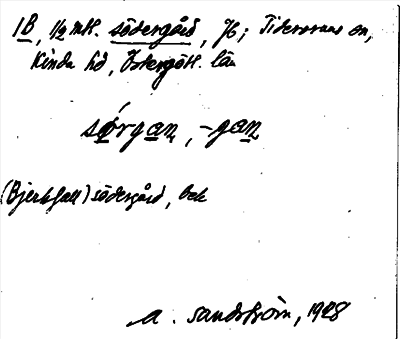 1B, 1/2 mtl. södergård, J6; Tidersrums sn,
Kinda hd, Östergötl. län
sørgan, -gan
(Bjerkfall) södergård, bek
A. Sandström, 1928